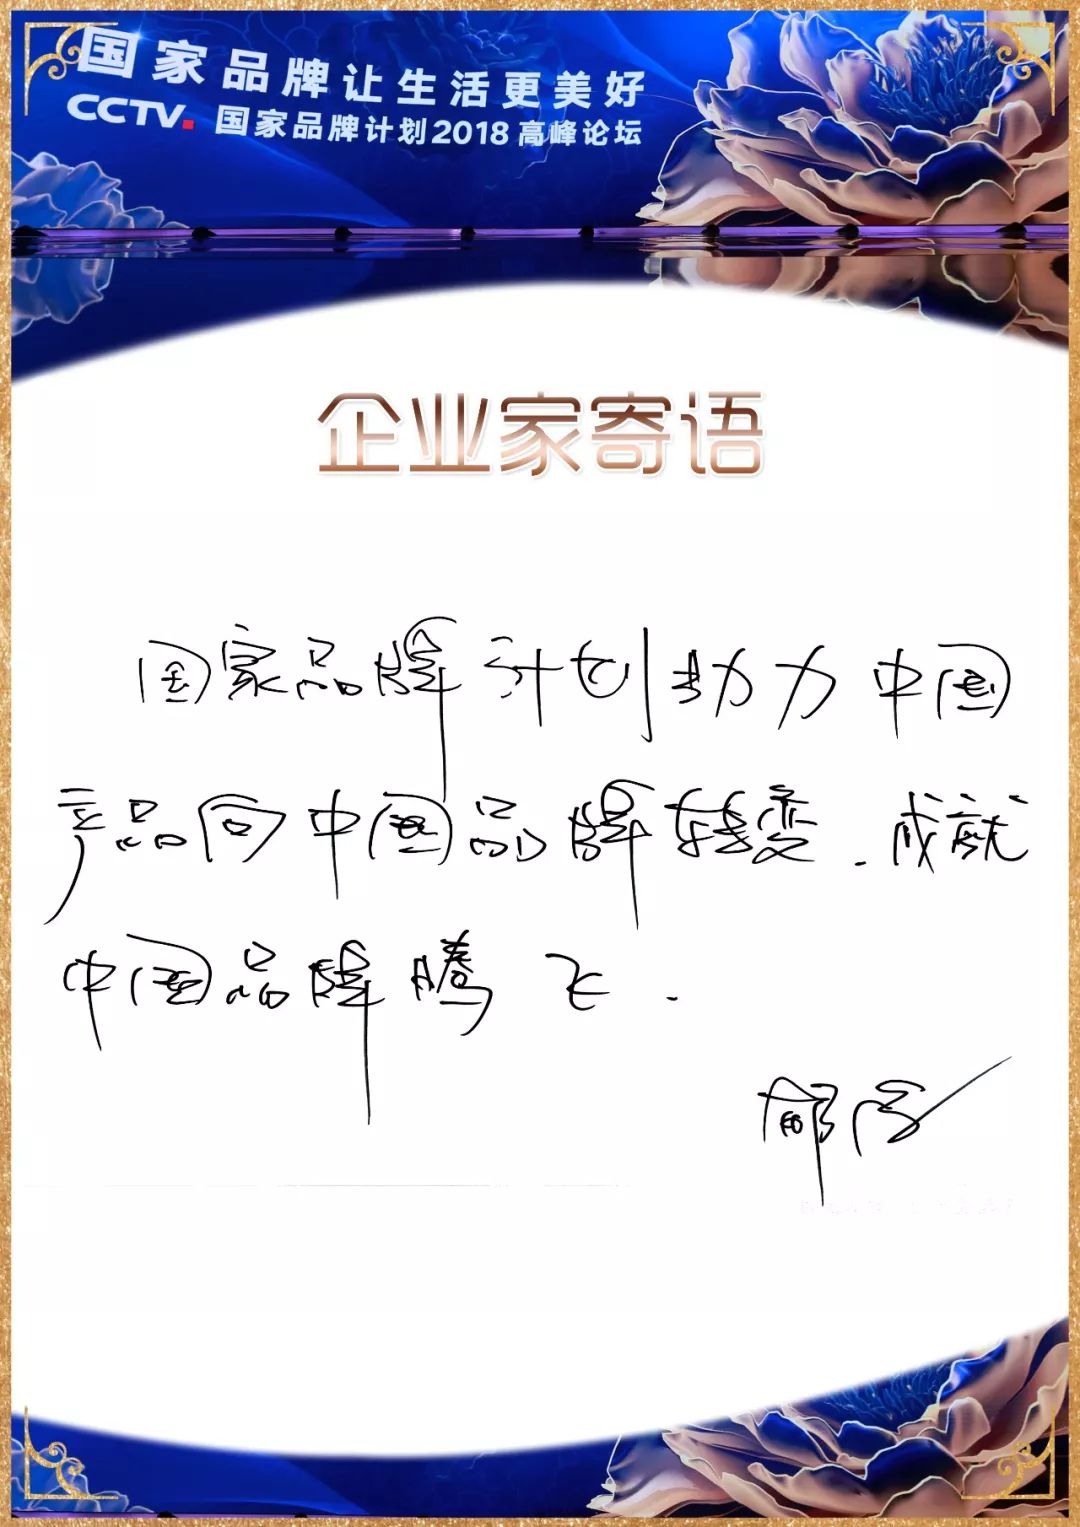 国家品牌让生活更美好
CCTV. 国家品牌计划2018高峰论坛
企业家寄语
国家品牌计划助力中国
产品向中国品牌转变.成就
中国品牌腾飞.
郁